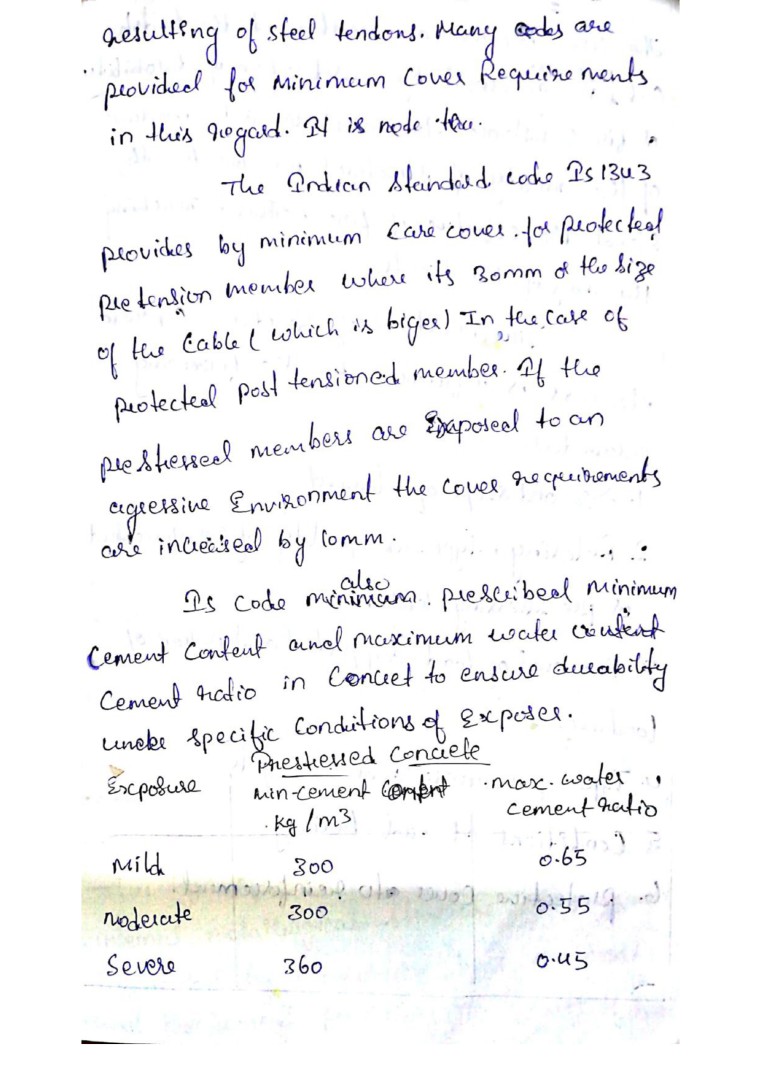 resulting of steel tendons. Many codes are
provided for minimum Cover Requirements
in this regard. It is node
The Indian Standard code Is 1343
provides by minimum Care cover. for protected
pretension member where its 30mm & the Size
of the Cable (which is biger) In the case of
protected post tensioned member. If the
prestressed members are Exaposed to an
agressive Environment the cover requirements
are increised by 10mm.
also
Is Code minimum. prescribed minimum
Cement Content and maximum water content
Cement ratio in Concret to ensure durability
under specific Conditions of Exposer.
Prestressed Concrete
Exposure min-cement Content max. water
kg/m3 cement ratio
Mild 300 0.65
moderate 300 0.55
Severe 360 0.45